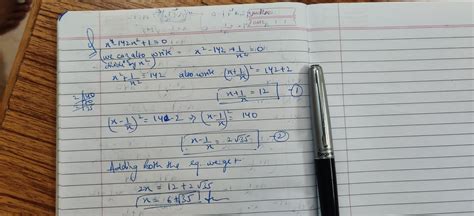 x⁴-142x²+1=0
we can also write - x²-142+1/x²=0
(divide by x²)
x²+1/x²=142 also write (x+1/x)²=142+2
x+1/x=12 ①
(x-1/x)²=142-2 ⇒ (x-1/x)²=140
x-1/x=2√35 ②
Adding both the eq. we get
2x=12+2√35
x=6+√35